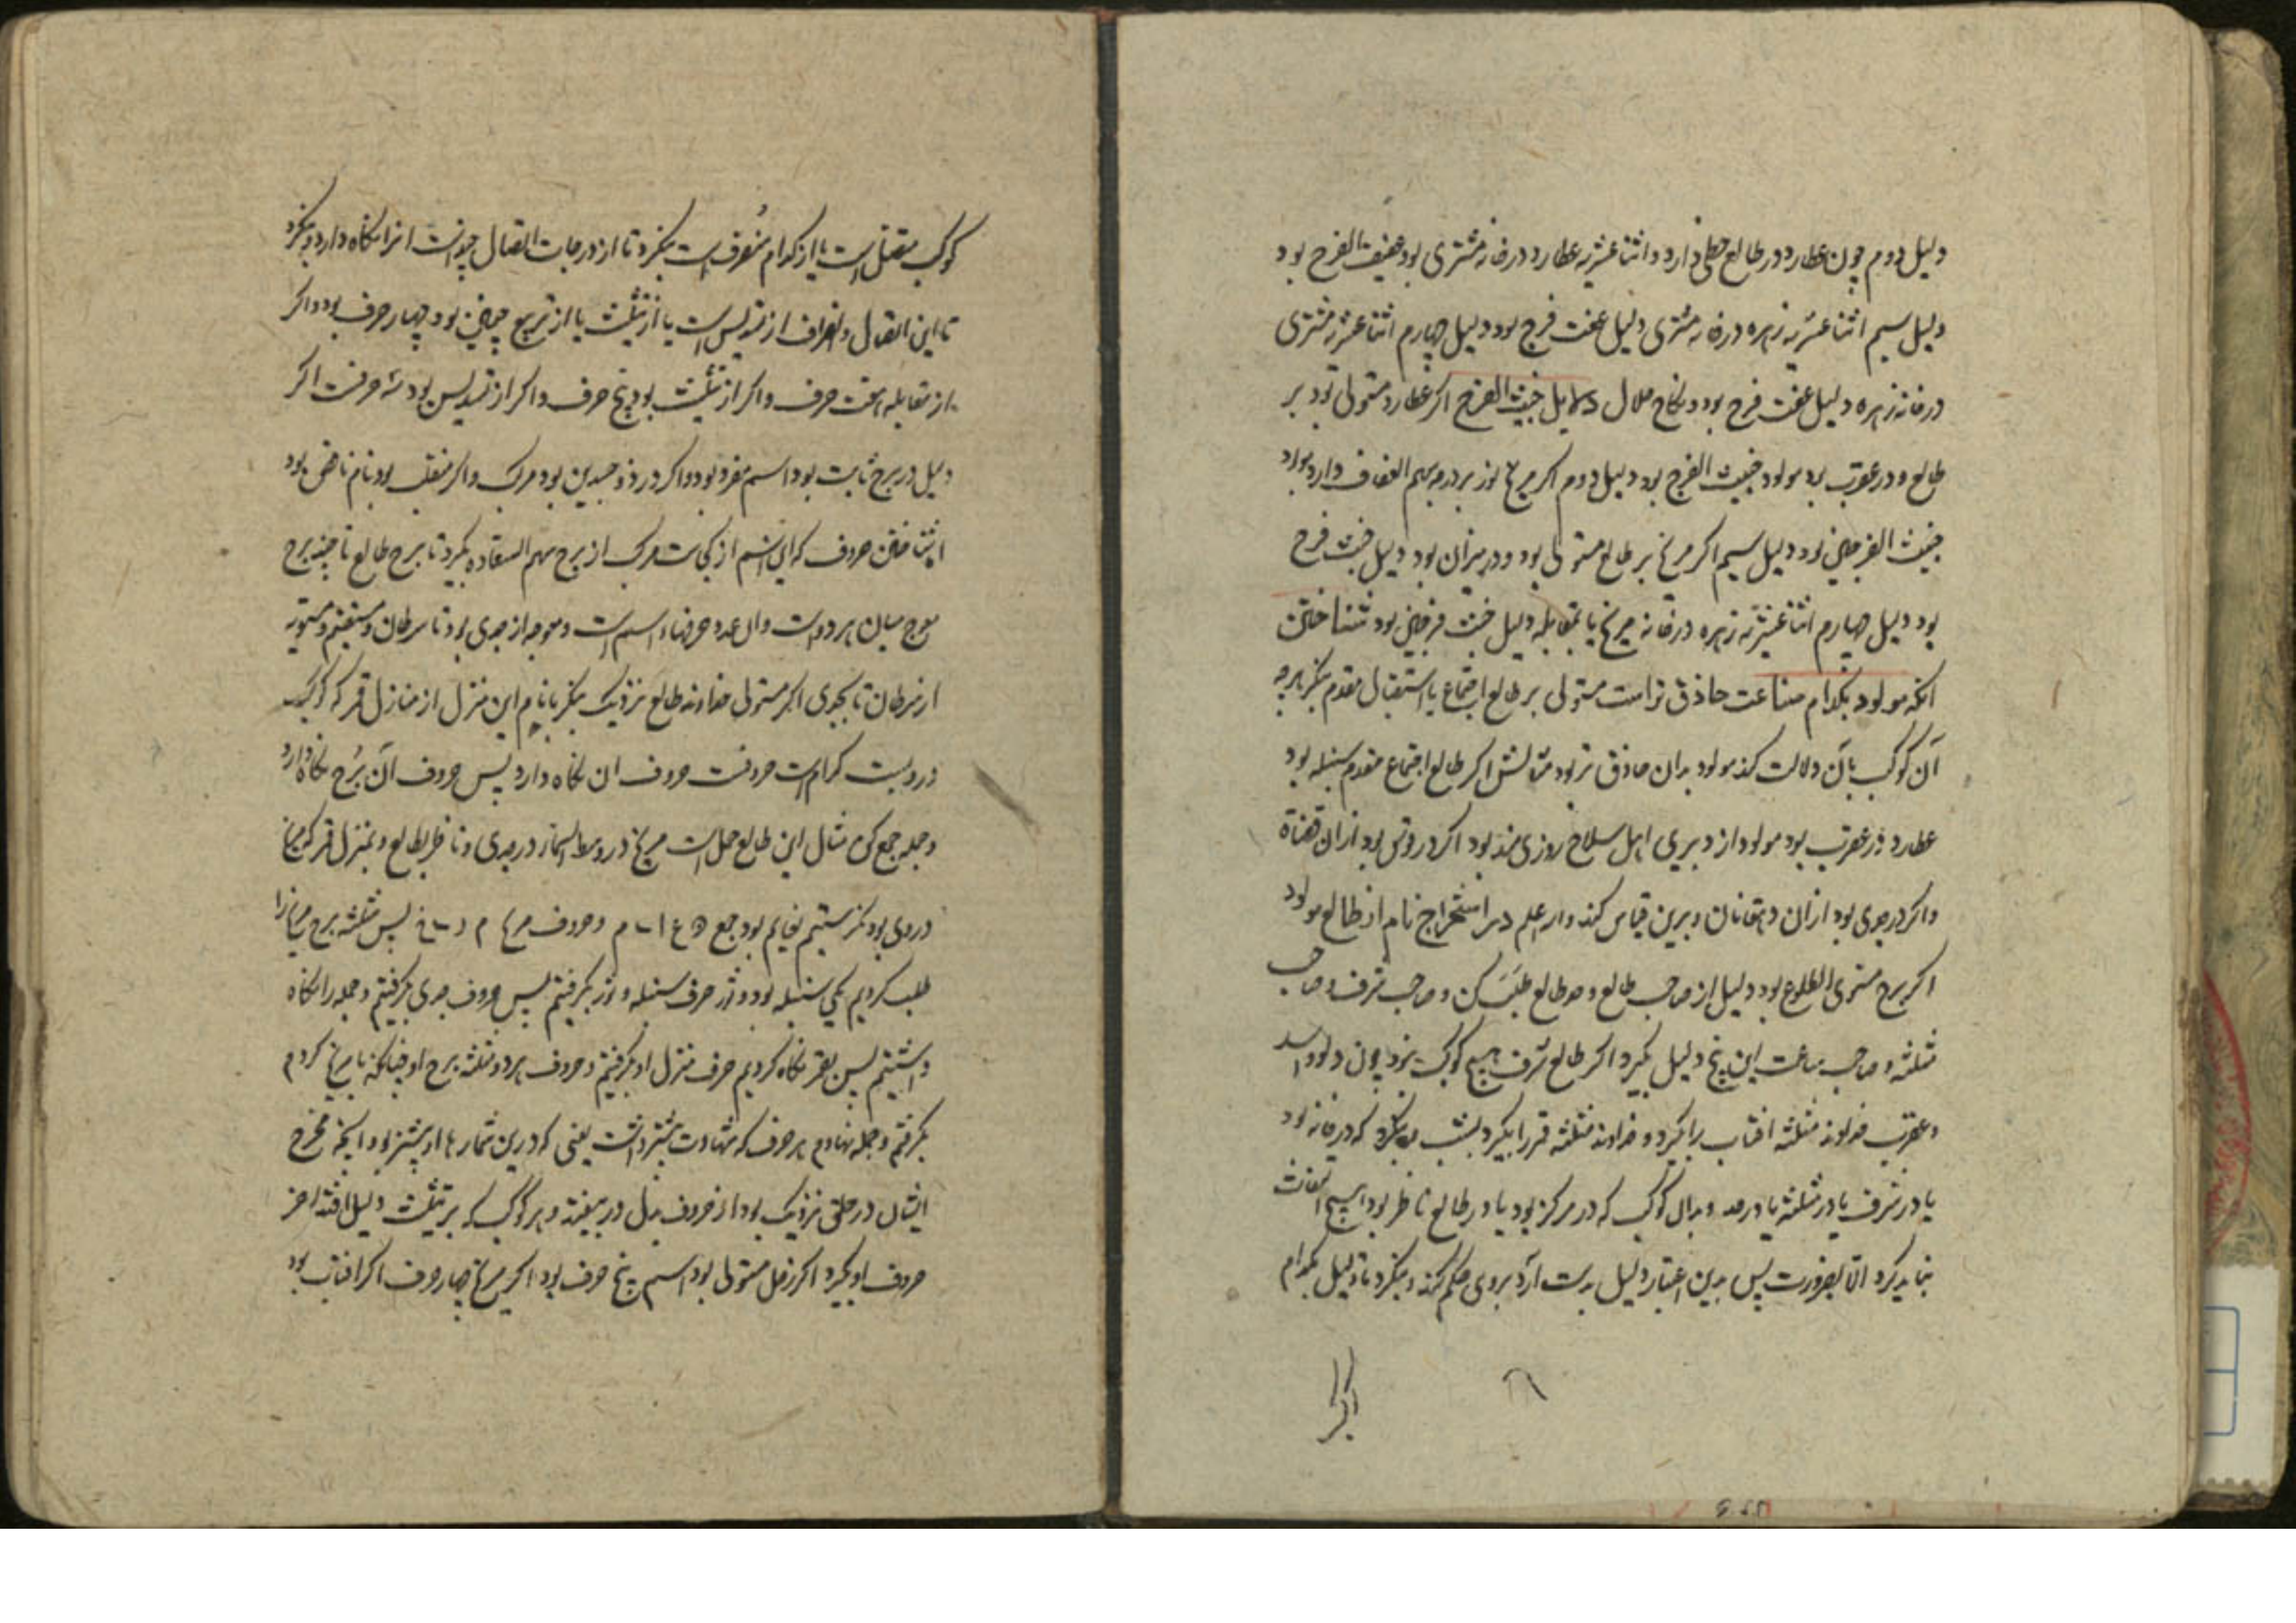 دلیل دوم چون عطارد در طالع حظی دارد و اثنا عشریه عطارد در خانه مشتری بود عفیف الفرج بود
دلیل سیم اثنا عشریه زهره در خانه مشتری دلیل عفت فرج بود دلیل چهارم اثنا عشریه مشتری
در خانه زهره دلیل عفت فرج بود و نکاح حلال دلایل خبیث الفرج اکر عطارد مستولی بود بر
طالع و در عقرب بود مولود خبیث الفرج بود دلیل دوم اکر مریخ نور بر درجه سهم العفاف دارد مولود
خبیث الفرج بود دلیل سیم اکر مریخ بر طالع مستولی بود و در میزان بود دلیل خبث فرج
بود دلیل چهارم اثنا عشریه زهره در خانه مریخ یا بمقابله دلیل خبث فرج بود شناختن
انکه مولود بکدام صناعت حاذق تر است مستولی بر طالع اجتماع یا استقبال مقدم بنکر بهرچه
آن کوکب بآن دلالت کند مولود بدان حاذق تر بود مثالش اکر طالع اجتماع مقدم سنبله بود
عطارد در عقرب بود مولود از دبیری اهل سلاح روزی مند بود اکر در قوس بود از ان قضاة
و اکر در جدی بود از ان دهقانان و برین قیاس کند والله اعلم در استخراج نام از طالع مولود
اکر برج مستوی الطلوع بود دلیل از صاحب طالع و حد طالع طلب کن و صاحب شرف و صاحب
مثلثه و صاحب ساعت این پنج دلیل بکیرد اکر طالع شرف هیچ کوکب نبود چون دلو و اسد
و عقرب خداوند مثلثه افتاب را بکیرد و خداوند مثلثه قمر را بکیرد بشب بنکرد که در خانه بود
یا در شرف یا در مثلثه یا در حد و بدان کوکب که در مرکز بود یا در طالع ناظر بود هیچ التفات
نباید کرد الا بضرورت پس بدین اعتبار دلیل بدست آرد بر وی حکم کند و بنکرد تا دلیل بکدام
کوکب متصل است یا از کدام منصرف است بنکرد تا از درجات اتصال چونست انرا نکاه دارد و بنکرد
تا این اتصال و انصراف از تسدیس است یا از تثلیث یا از تربیع بود چهار حرف بود و اکر
از مقابله هفت حرف و اکر از تثلیث بود پنج حرف و اکر از تسدیس بود سه حرفست اکر
دلیل در برج ثابت بود اسم مفرد بود و اکر در ذو جسدین بود مرکب و اکر منقلب بود نام ناقص بود
شناختن حروف که این اسم از کجاست مرکب از برج سهم السعاده بکیرد تا برج طالع تا چند برج
معوج میان هر دو است و ان عدد حرفهاء اسم است و معوجه از جدی بود تا سرطان و مستقیم
از سرطان تا بجدی اکر مستولی خداوند طالع نزدیک بنکر تا نام این منزل از منازل قمر که کوکب
در ویست کدام است حرفست حروف ان نکاه دارد پس حروف آن برج نکاه دارد
و جمله جمع کن مثال این طالع حمل است مریخ در وسط السماء در جدی و ناظر بطالع و بمنزل قمر که مریخ
طلب کردیم یکی سنبله بود و ثور حرف سنبله و ثور بکرفتیم پس حروف جدی بکرفتیم و جمله را نکاه
داشتیم پس بقمر نکاه کردیم حرف منزل او بکرفتیم و حروف هر دو مثلثه برج او چنانکه با مریخ کردم
بکرفتم و جمله نهادم هر حرف که شهادت بیشتر داشت یعنی که درین شمارها او بیشتر بود و انچه مخرج
ایشان در حلق نزدیک بود از حروف بدل در بیفتد و هر کوکب که بر تثلیث دلیل افتد اخر
حروف او بکیرد اکر زحل مستولی بود اسم پنج حرف بود اکر مریخ چهار حرف اکر افتاب بود